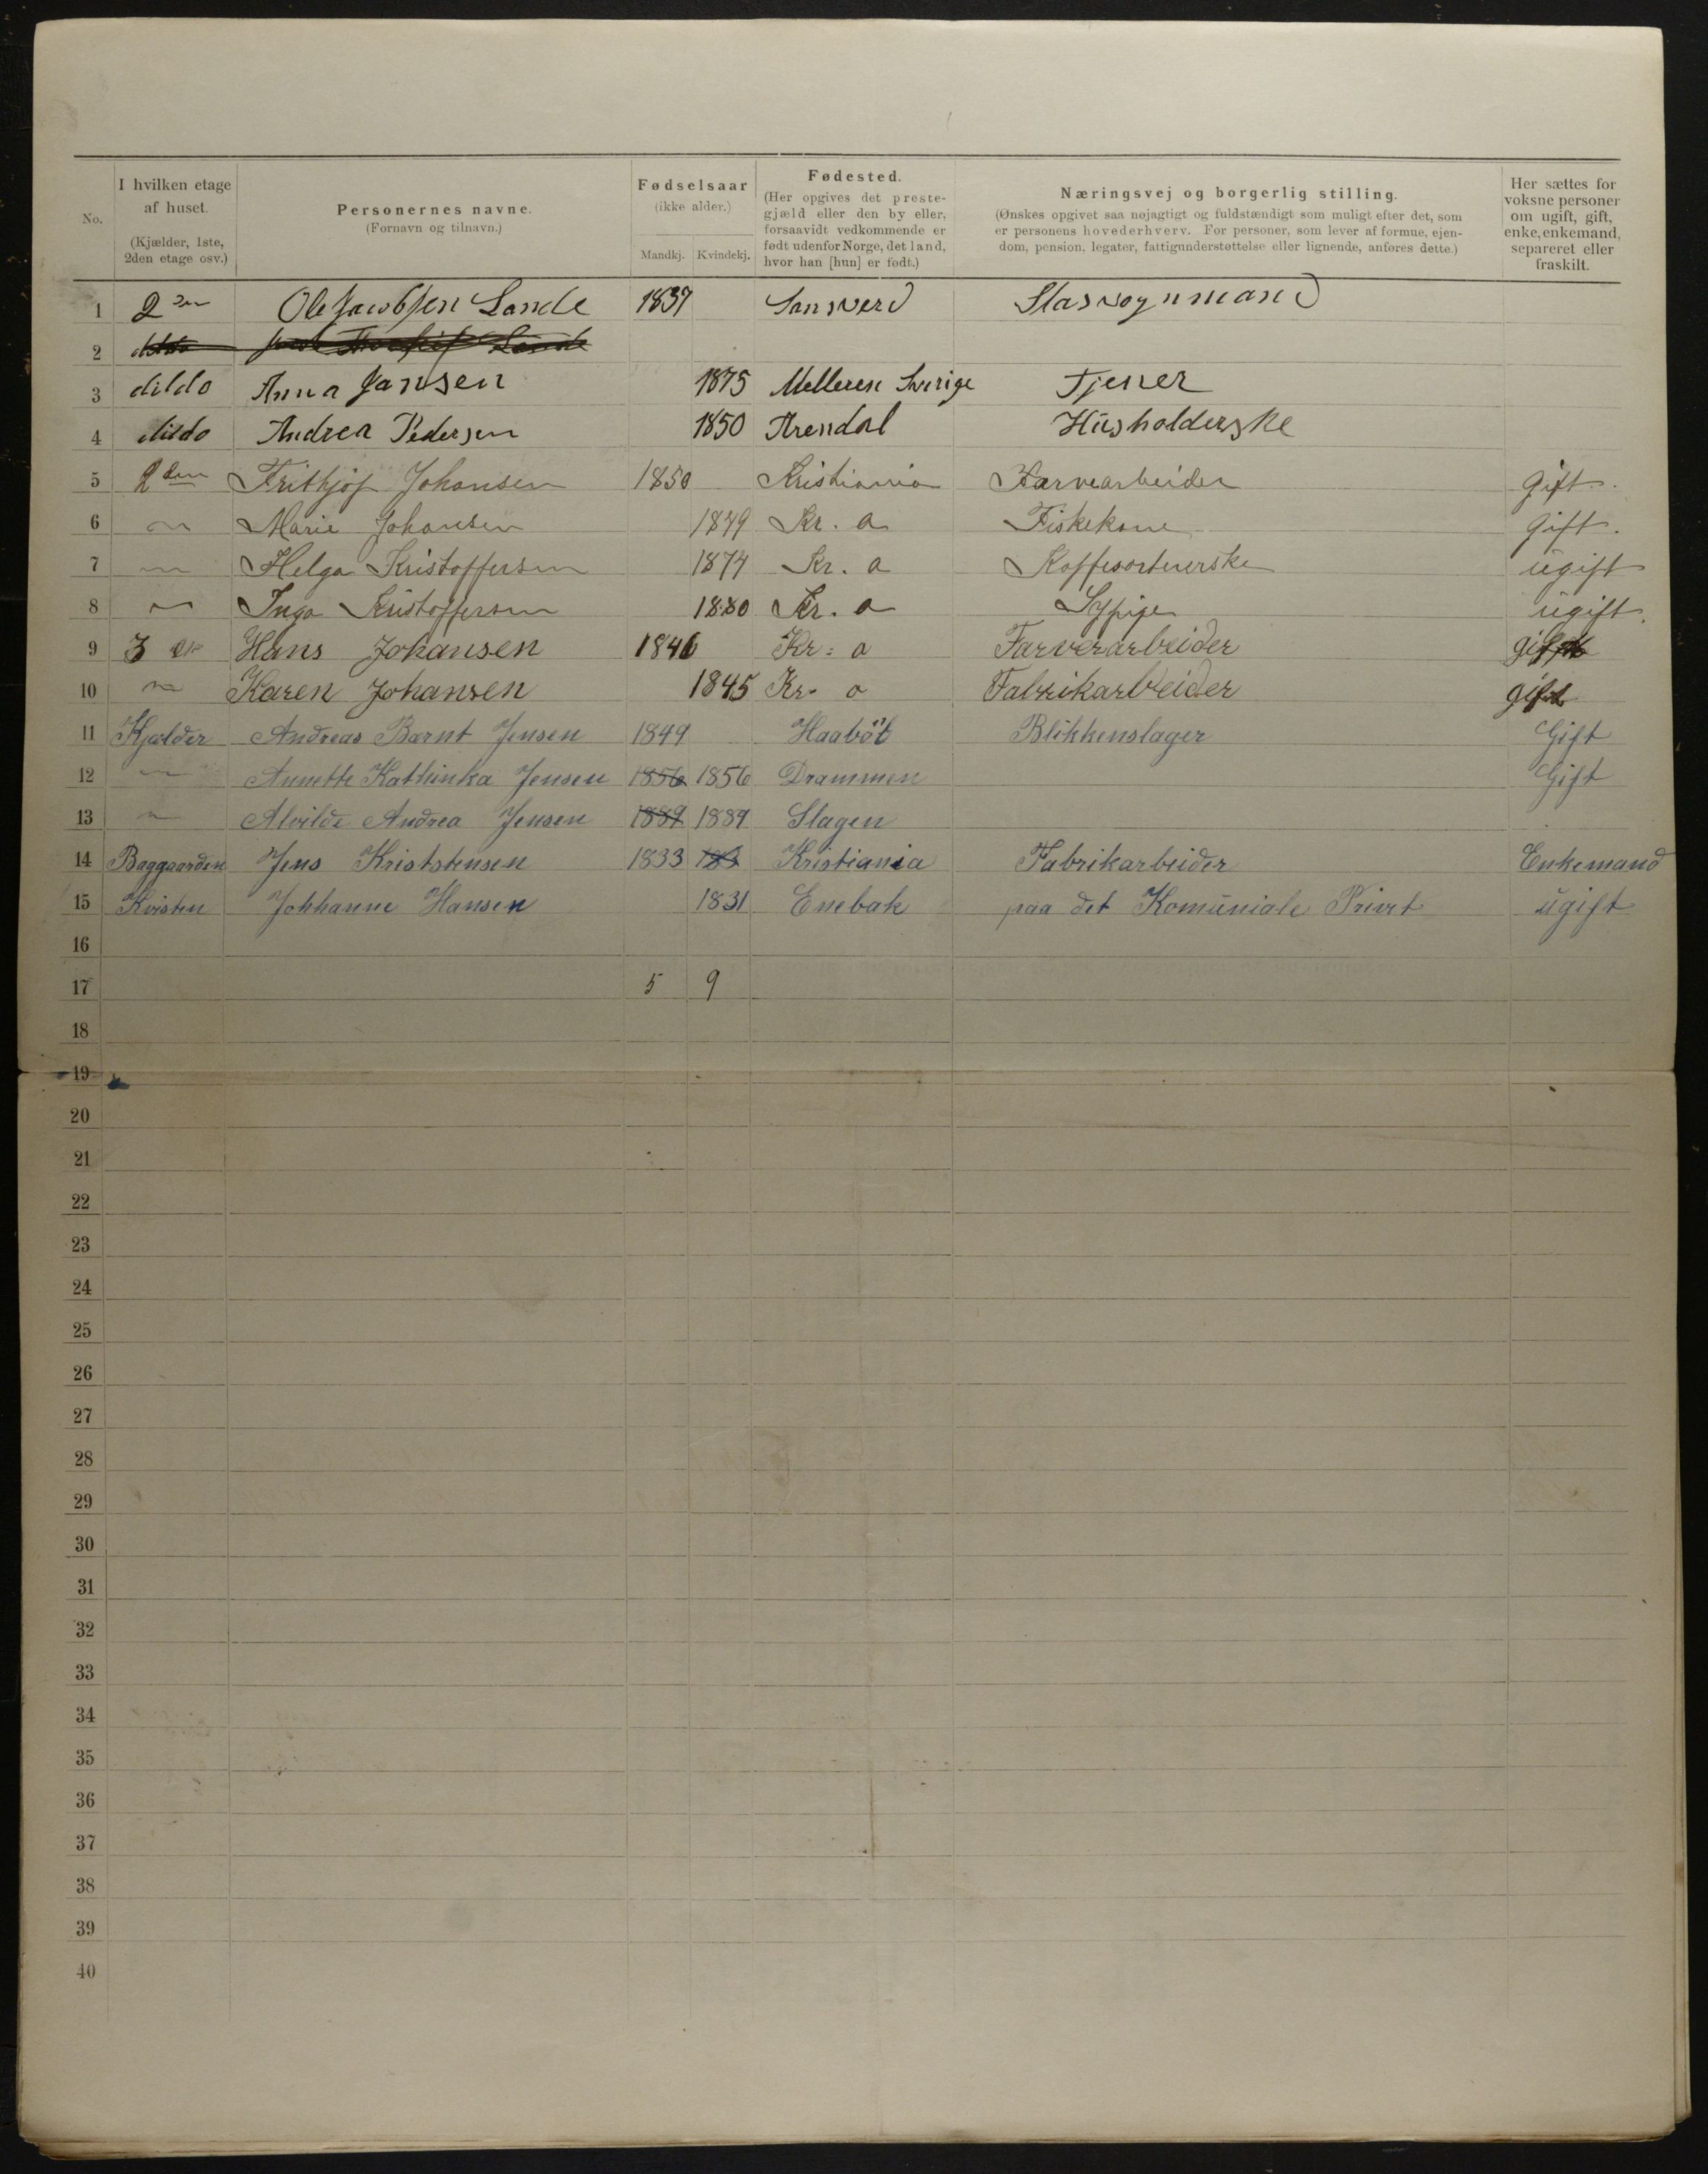 No. | I hvilken etage af huset. (Kjælder, 1ste, 2den etage osv.) | Personernes navne. (Fornavn og tilnavn.) | Fødselsaar (ikke alder.) Mandkj. Kvindekj. | Fødested. (Her opgives det prestegjæld eller den by eller, forsaavidt vedkommende er født udenfor Norge, det land, hvor han [hun] er født.) | Næringsvej og borgerlig stilling. (Ønskes opgivet saa nøjagtigt og fuldstændigt som muligt efter det, som er personens hovederhverv. For personer, som lever af formue, ejendom, pension, legater, fattigunderstøttelse eller lignende, anføres dette.) | Her sættes for voksne personer om ugift, gift, enke, enkemand, separeret eller fraskilt.
1 2den Ole Jacobsen Lande 1837
2 Lande
3 dildo Anna Jansen 1875 Melleren Sverige Tjener
4 dildo Andrea Pedersen 1850 Arendal Husholderske
5 2den Frithjof Johansen 1850 Kristiania Farvearbeider gift.
6 — Marie Johansen 1849 Kr. a Fiskekone gift.
7 — Helga Kristoffersen 1874 Kr. a Kaffesortererske ugift
8 — Inga Kristoffersen 1880 Kr. a Sypige ugift.
9 3 Hans Johansen 1846 Kr: a Farverarbeider gift
10 — Karen Johansen 1845 Kr- a Fabrikarbeider gift
11 Kjælder Andreas Barnt Jensen 1849 Haaböl Blikkenslager Gift
12 — Annette Kathinka Jensen 1856 1856 Drammen Gift
13 — Alvilde Andrea Jensen 1889 1889 Slagen
14 Baggaarden Jens Kriststensen 1833 Kristiania Fabrikarbeider Enkemand
15 Kvisten Johhanne Hansen 1831 Enebak paa det Komuniale ugift
16
17 5 9
18
19
20
21
22
23
24
25
26
27
28
29
30
31
32
33
34
35
36
37
38
39
40